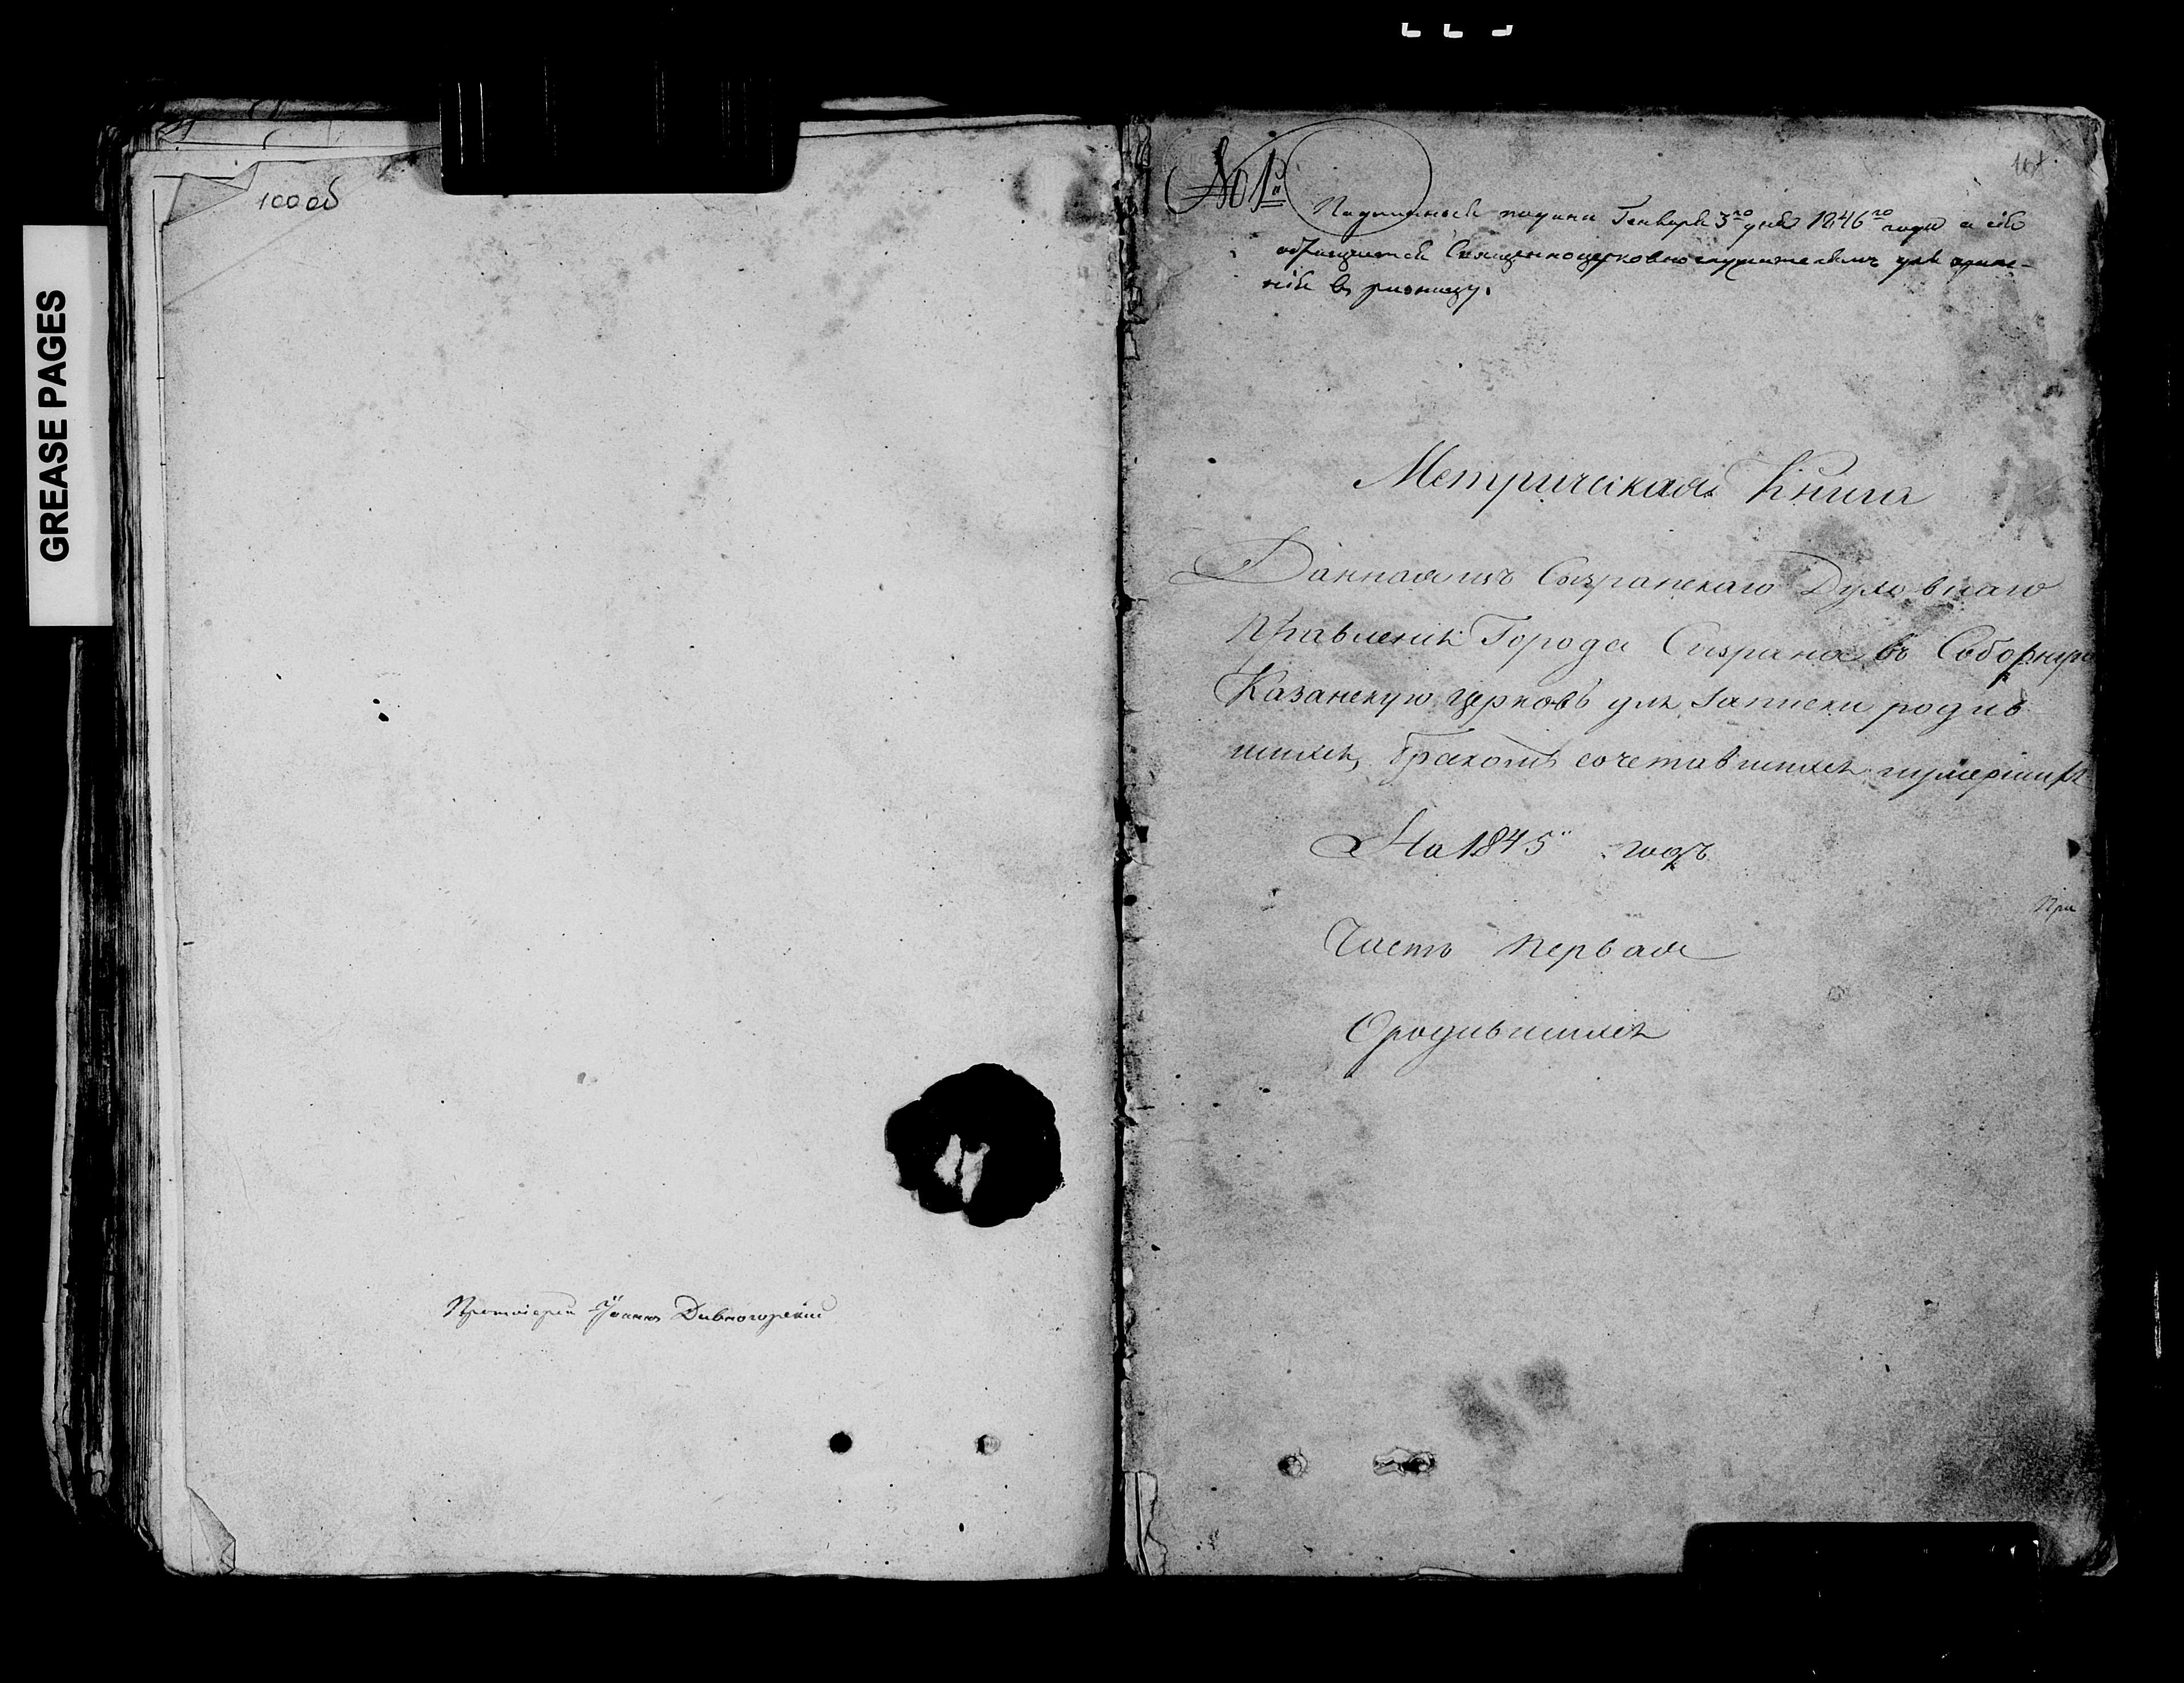 GREASE PAGES
100 об
Протоіерей Іоаннъ Дивногорскій
101.
№ 1й
Подлинная подана Генваря 3го дня 1846го года а сія
обращается Священноцерковнослужителямъ для хране-
нія въ ризницу.
Метрическая Книга
Данная изъ Сызранскаго Духовнаго
Правленія Города Сызрана въ Соборную
Казанскую церковь для записки родив
шихся, бракомъ сочетавшихся и умершихъ
На 1845й годъ
При
Часть первая
О родившихся